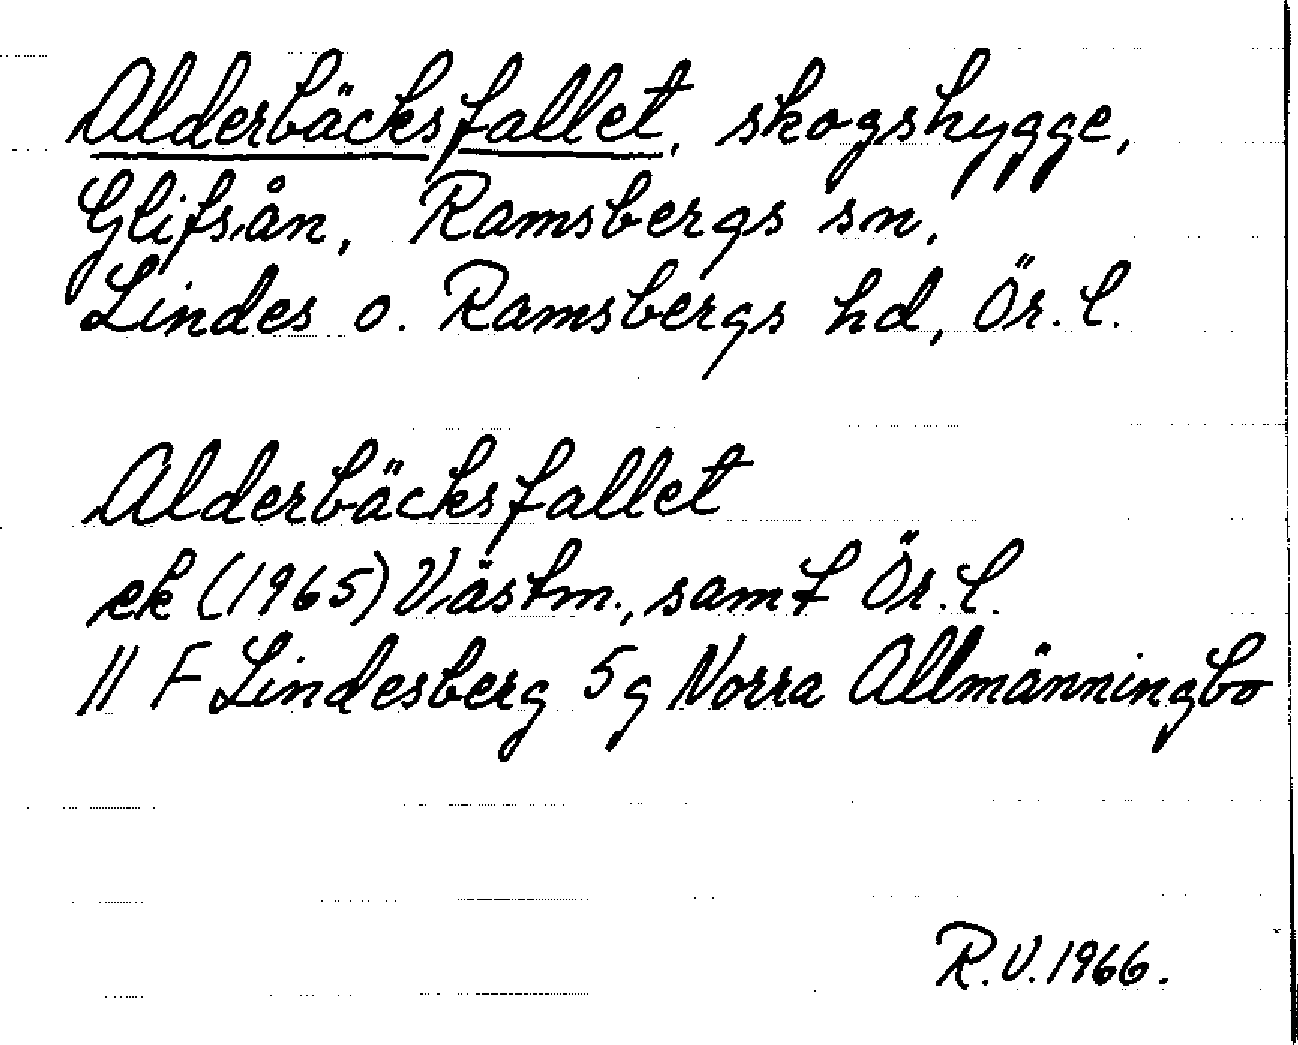 Alderbäcksfallet, skogshygge,
Glifsån, Ramsbergs sn,
Lindes o. Ramsbergs hd, Ör. l.
Alderbäcksfallet
ek (1965) Västm., samt Ör. l.
11 F Lindesberg 5 g Norra Allmänningbo
R.V. 1966.